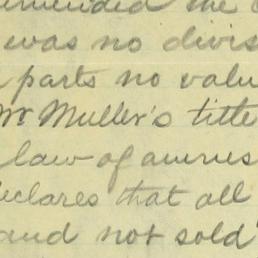 the
was no divis
parts no valu
Mr Muller's title
law of
eclares that all
and not sold